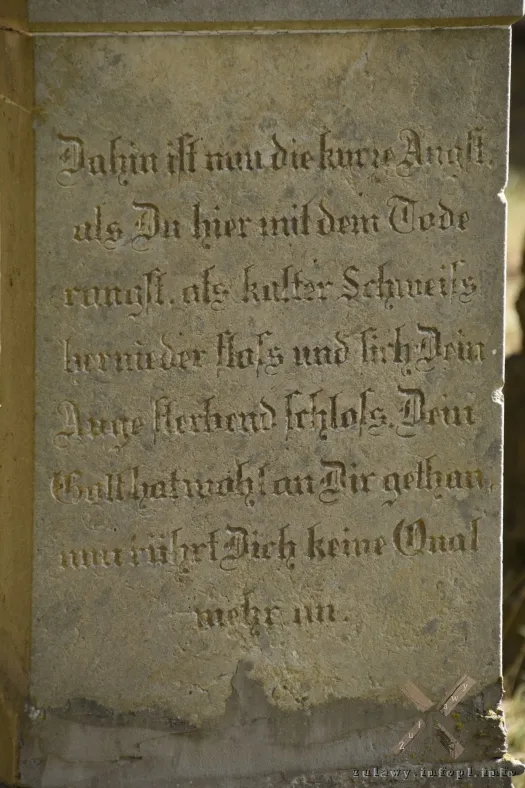 Dahin ist nun die kurze Angst,
als Du hier mit dem Tode
rangst, als kalter Schweiss
hernieder floss und sich Dein
Auge sterbend schloss. Dein
Gott hat wohl an Dir gethan,
nun rührt Dich keine Qual
mehr an.
zulawy
zulawy.infopl.info